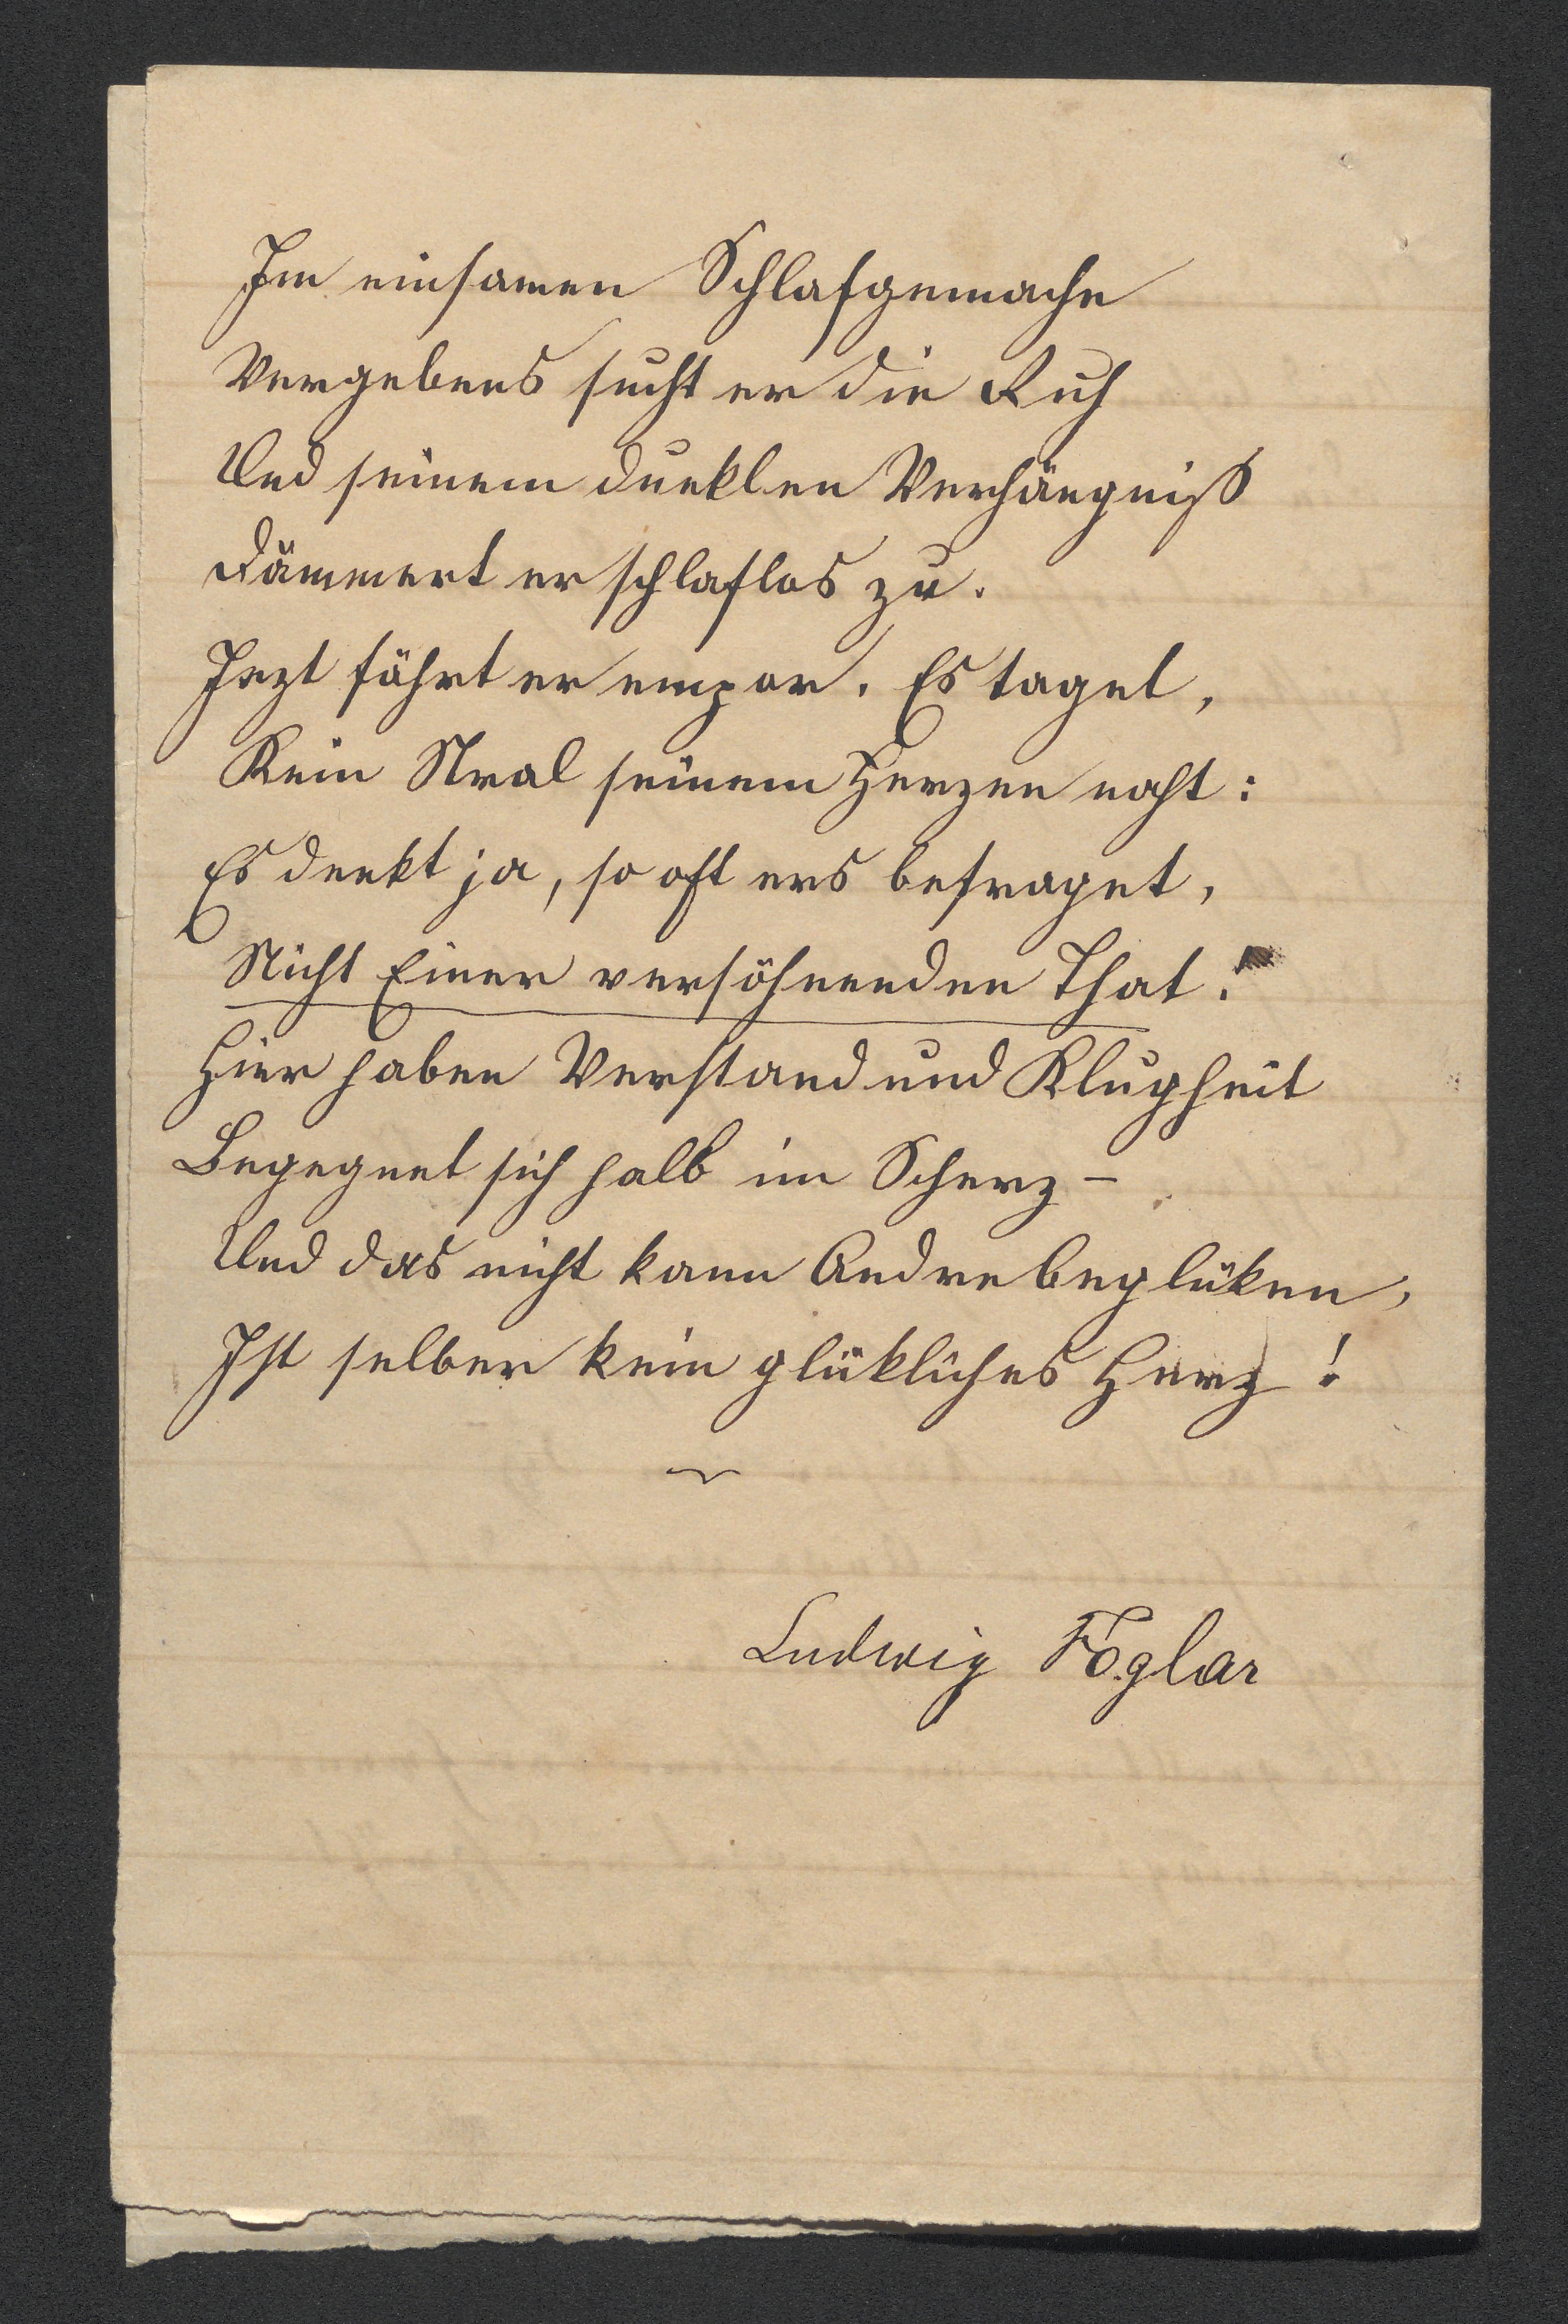 Im einsamen Schlafgemache
Vergebens sucht er die Ruh
Und seinem dunklen Verhängniß
Dämmert er schlaflos zu.
Jezt fährt er empor. Es taget,
Kein Stral seinem Herzen naht:
Es denkt ja, so oft ers befraget,
Nicht Einer versöhnenden That!
Hier haben Verstand und Klugheit
Begegnet sich halb im Scherz –
Und das nicht kann Andre beglüken,
Ist selber kein glükliches Herz!
Ludwig Foglar